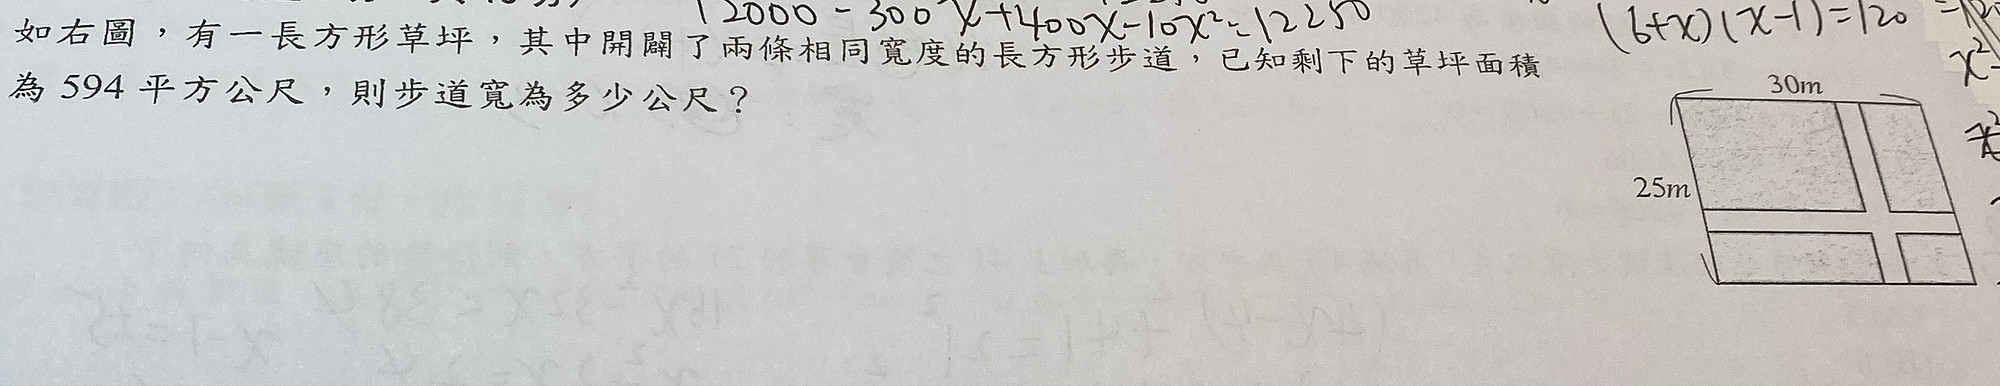 12000-300x+400x-10x²=12250
(6+x)(x-1)=120
如右圖，有一長方形草坪，其中開闢了兩條相同寬度的長方形步道，已知剩下的草坪面積
為 594 平方公尺，則步道寬為多少公尺？
30m
25m